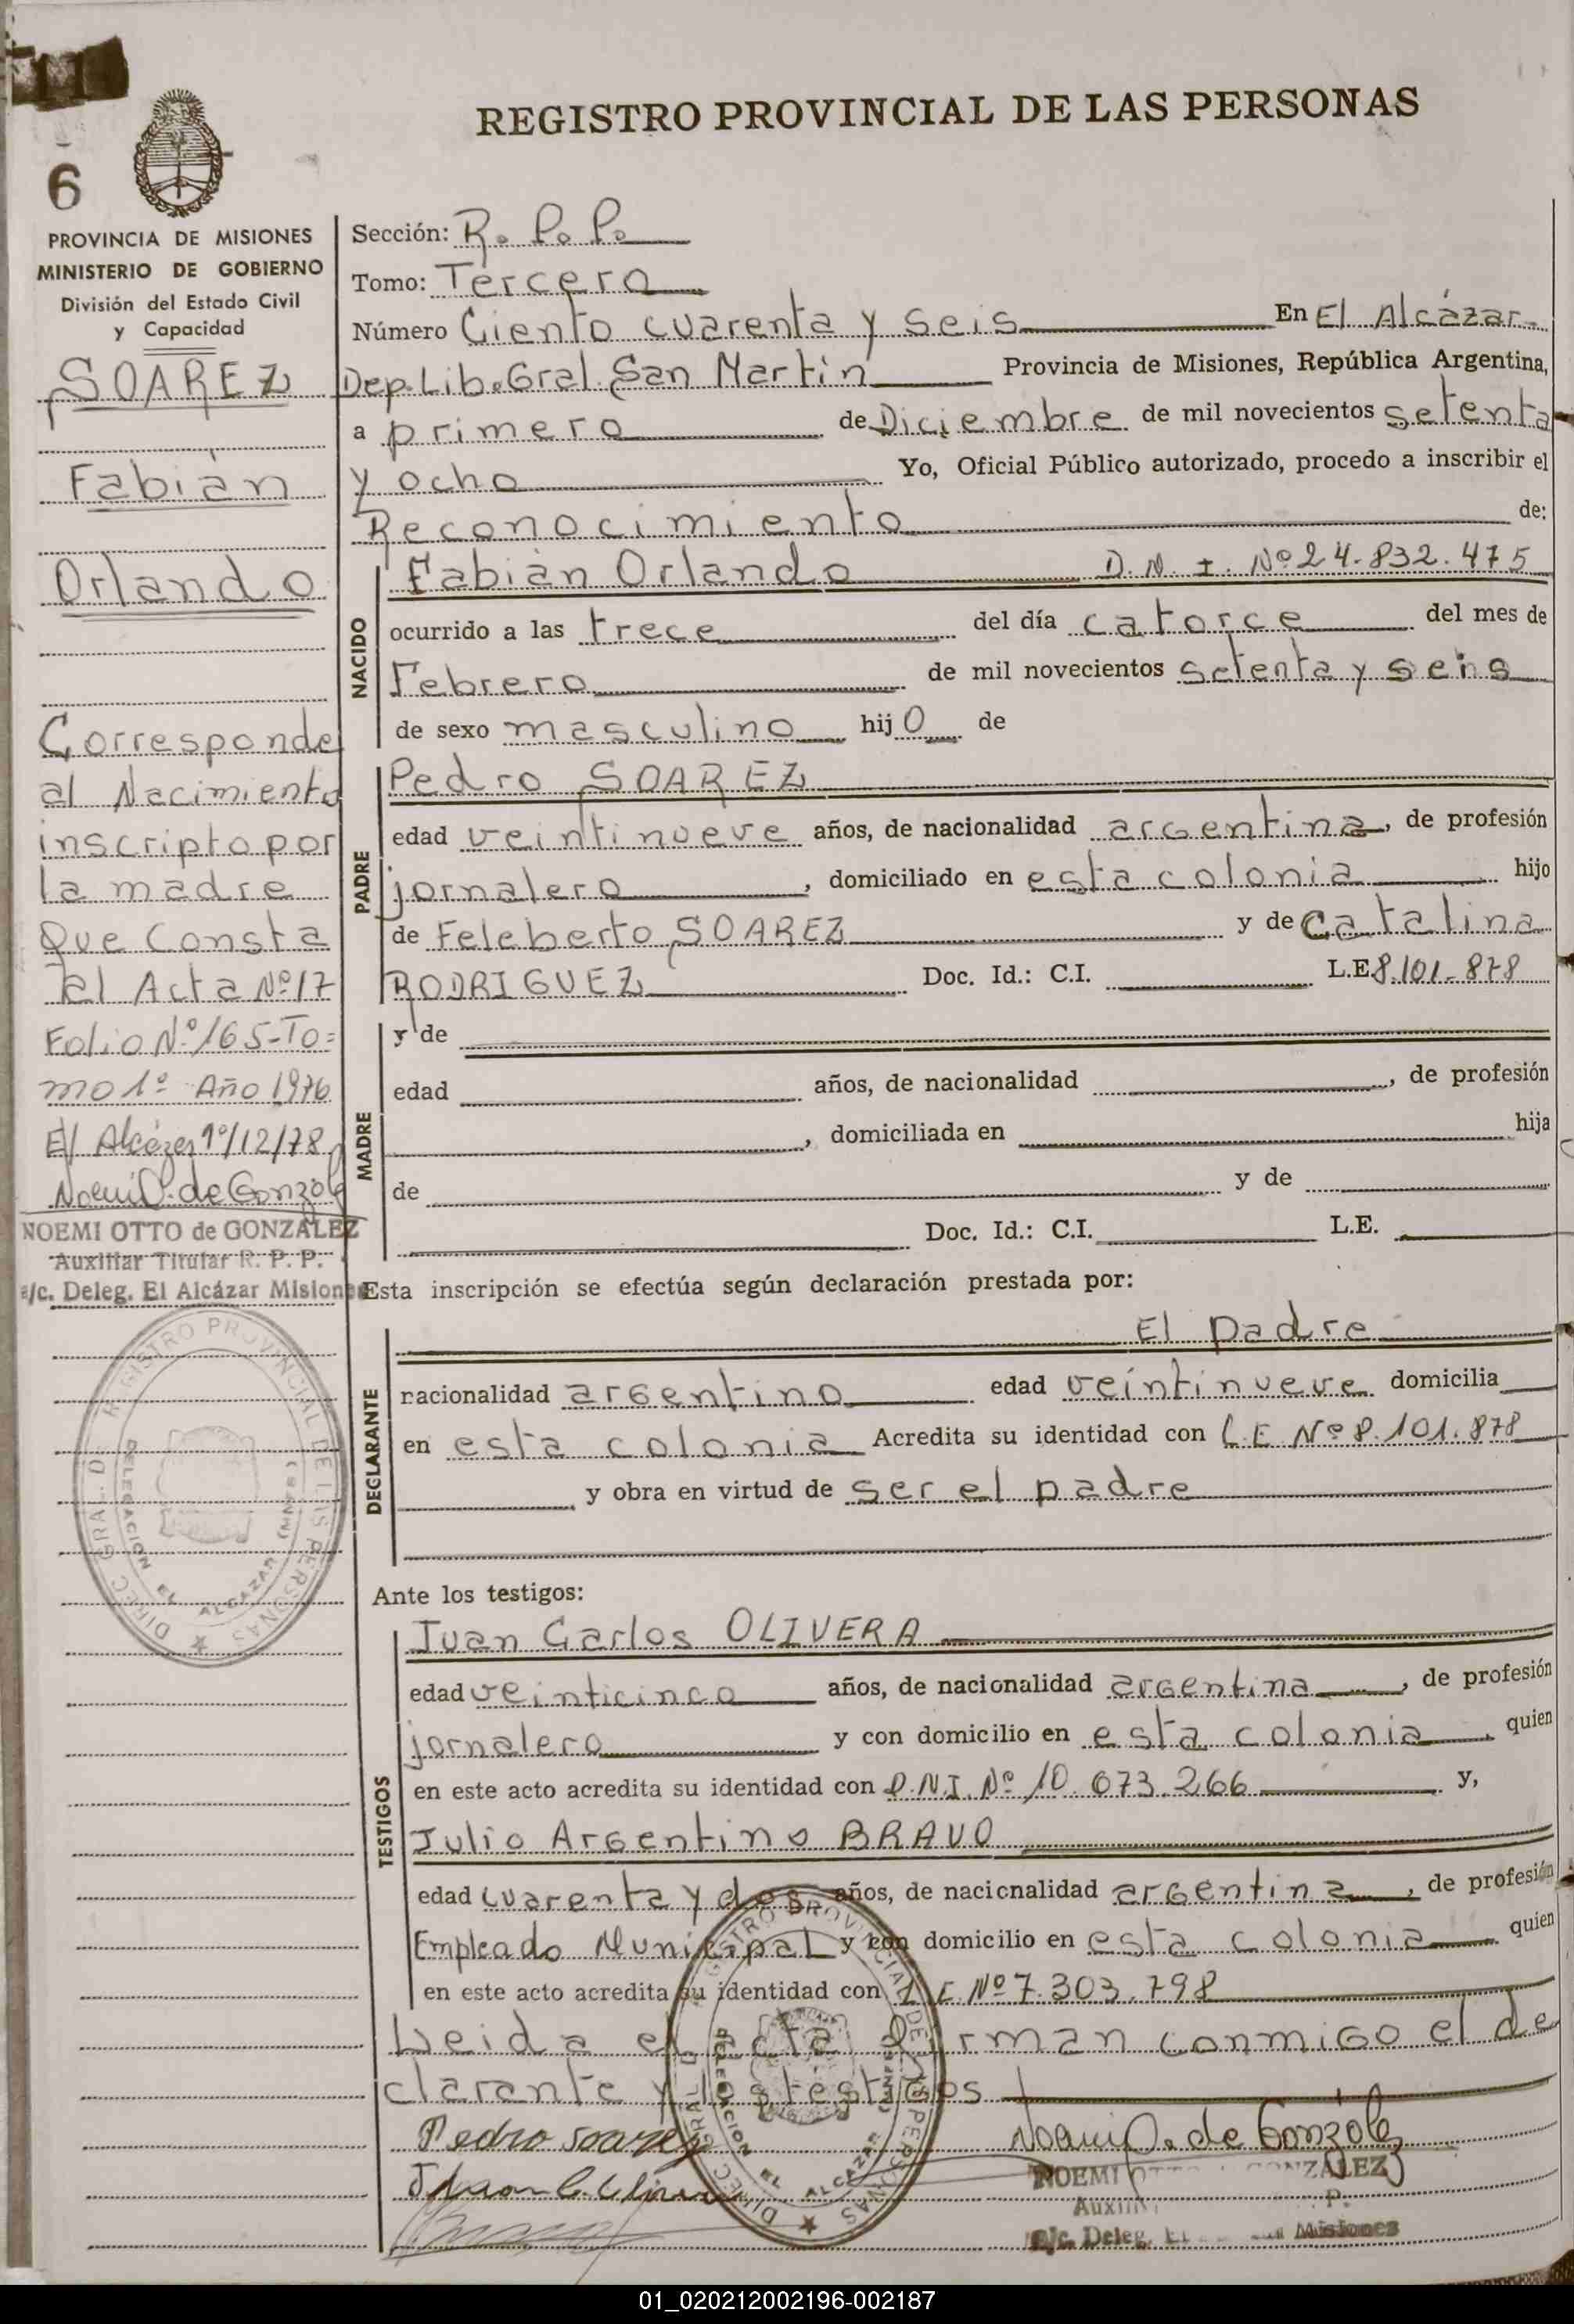 REGISTRO PROVINCIAL DE LAS PERSONAS
6
PROVINCIA DE MISIONES
MINISTERIO DE GOBIERNO
División del Estado Civil
y Capacidad
SOAREZ
Fabián
Orlando
Corresponde
al Nacimiento
inscripto por
la madre
Que Consta
el Acta Nº 17
Folio Nº 165-To=
mo 1º Año 1976
El Alcázar 1º/12/78
Noemi O. de Gonzále
NOEMI OTTO de GONZALEZ
Auxiliar Titular R. P. P.
a/c. Deleg. El Alcázar Misiones
DIREC. GRAL. DE REGISTRO PROVINCIAL DE LAS PERSONAS
DELEGACION EL ALCAZAR
Sección: R. P. P.
Tomo: Tercero
Número Ciento cuarenta y seis En El Alcázar
Dep. Lib. Gral. San Martín Provincia de Misiones, República Argentina,
a primero de Diciembre de mil novecientos setenta
y ocho Yo, Oficial Público autorizado, procedo a inscribir el
Reconocimiento de:
NACIDO
Fabián Orlando D. N. I. Nº 24.832.475
ocurrido a las trece del día catorce del mes de
Febrero de mil novecientos setenta y seis
de sexo masculino hijo de
PADRE
Pedro SOAREZ
edad veintinueve años, de nacionalidad argentina, de profesión
jornalero, domiciliado en esta colonia hijo
de Feleberto SOAREZ y de Catalina
RODRIGUEZ Doc. Id.: C.I. L.E. 8.101.878
MADRE
y de
edad años, de nacionalidad , de profesión
, domiciliada en hija
de y de
Doc. Id.: C.I. L.E.
Esta inscripción se efectúa según declaración prestada por:
DECLARANTE
El padre
nacionalidad argentino edad veintinueve domicilia
en esta colonia Acredita su identidad con L.E Nº 8.101.878
, y obra en virtud de ser el padre
Ante los testigos:
TESTIGOS
Juan Carlos OLIVERA
edad veinticinco años, de nacionalidad argentina, de profesión
jornalero y con domicilio en esta colonia, quien
en este acto acredita su identidad con D.N.I. Nº 10.673.266 y,
Julio Argentino BRAVO
edad cuarenta y dos años, de nacionalidad argentina, de profesión
Empleado Municipal y con domicilio en esta colonia quien
en este acto acredita su identidad con L.E Nº 7.303.798
Leida el acta firman conmigo el de
clarante y los testigos
Pedro soarez
Noemi O. de González
Juan C. Olivera
NOEMI OTTO GONZALEZ
a/c. Deleg. El Misiones
DIREC. GRAL. DE REGISTRO PROVINCIAL DE LAS PERSONAS
DELEGACION EL ALCAZAR
01_020212002196-002187